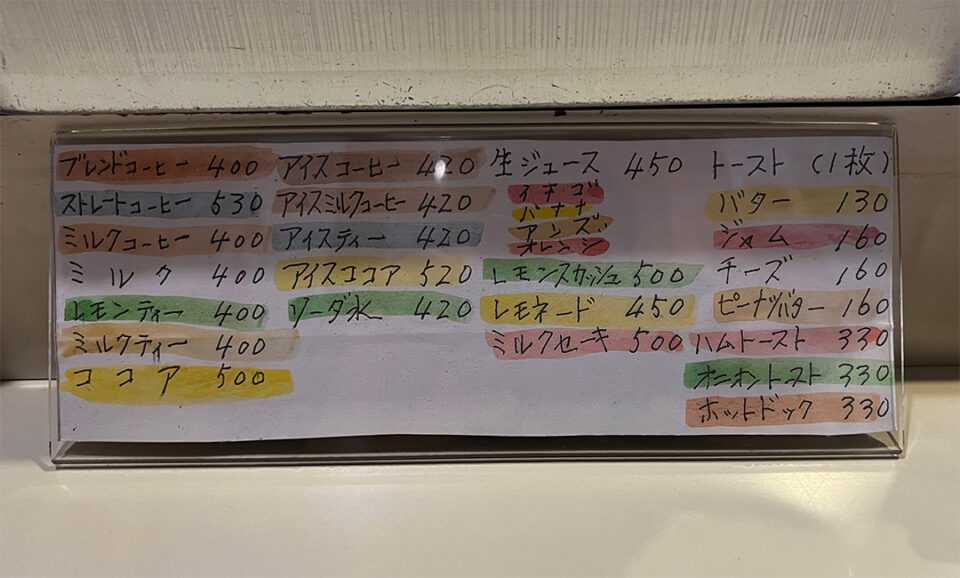 ブレンドコーヒー 400
ストレートコーヒー 530
ミルクコーヒー 400
ミルク 400
レモンティー 400
ミルクティー 400
ココア 500
アイスコーヒー 420
アイスミルクコーヒー 420
アイスティー 420
アイスココア 520
ソーダ水 420
生ジュース 450
イチゴ
バナナ
アンズ
オレンジ
レモンスカッシュ 500
レモネード 450
ミルクセーキ 500
トースト (1枚)
バター 130
ジャム 160
チーズ 160
ピーナツバター 160
ハムトースト 330
オニオントースト 330
ホットドック 330